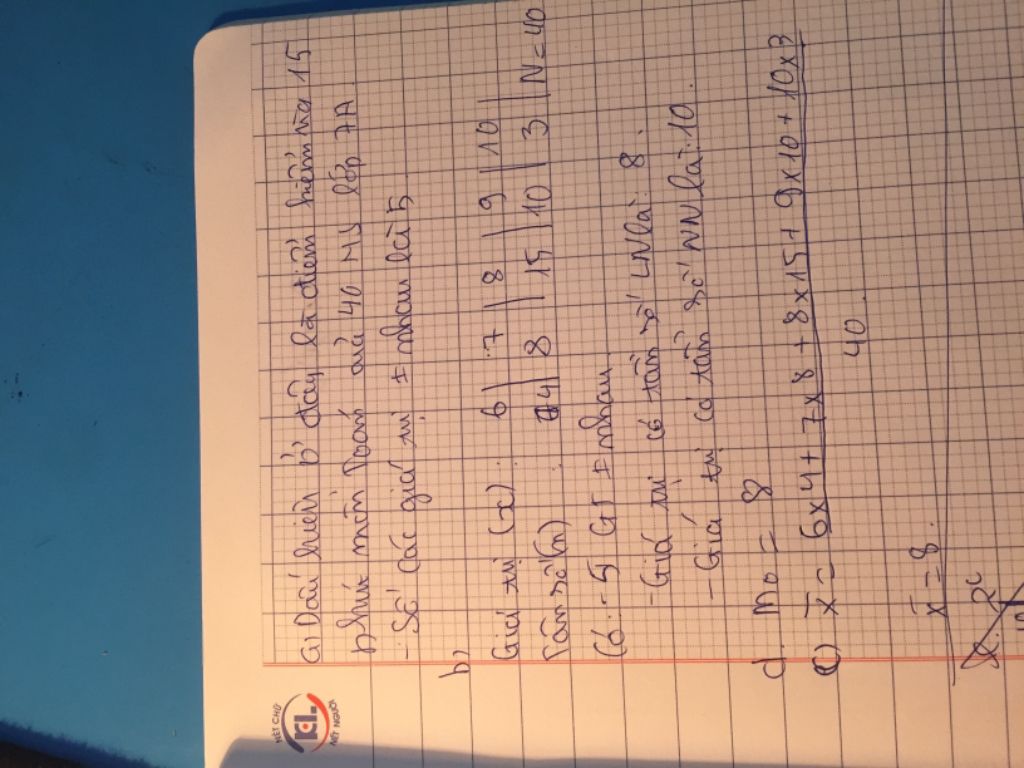 NÉT CHỮ
KL
NẾT NGƯỜI
a) Dấu hiệu ở đây là điểm kiểm tra 15
phút môn Toán của 40 hs lớp 7A
- Số các giá trị ≠ nhau là 5
b)
Giá trị (x) 6 | 7 | 8 | 9 | 10 |
Tần số (n) 4 | 8 | 15 | 10 | 3 | N = 40
Có: - 5 GT ≠ nhau
- Giá trị có tần số LN là: 8.
- Giá trị có tần số NN là: 10.
d. M₀ = 8
c) X̄ = 6x4 + 7x8 + 8x15 + 9x10 + 10x3
40.
X̄ = 8.